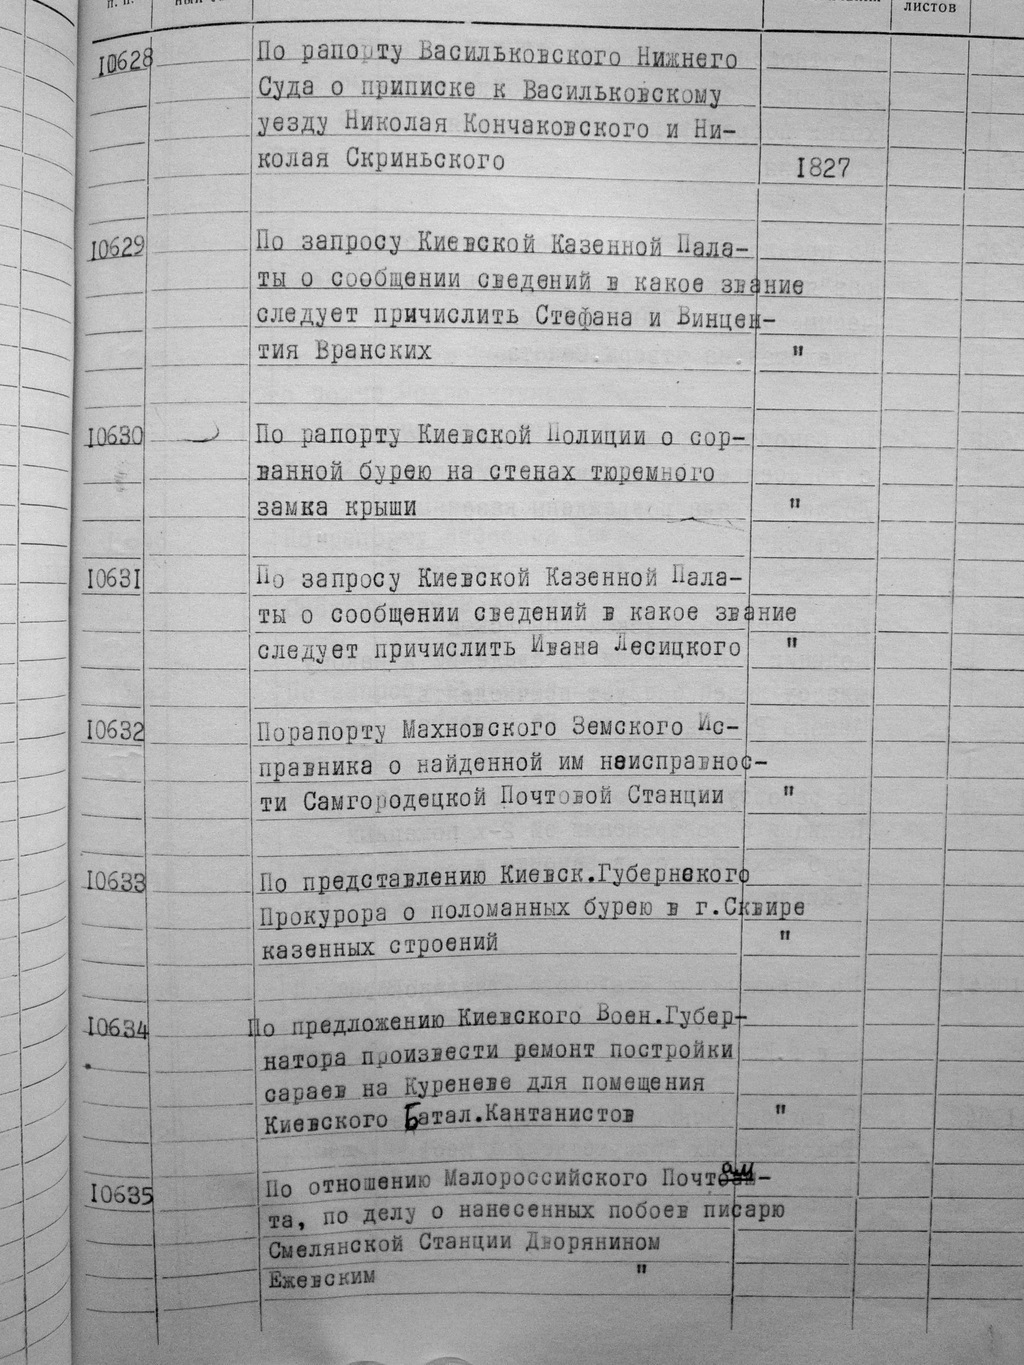 п. п.
листов
10628
По рапорту Васильковского Нижнего
Суда о приписке к Васильковскому
уезду Николая Кончаковского и Ни-
колая Скриньского
1827
10629
По запросу Киевской Казенной Пала-
ты о сообщении сведений в какое звание
следует причислить Стефана и Винцен-
тия Вранских "
10630
По рапорту Киевской Полиции о сор-
ванной бурею на стенах тюремного
замка крыши "
10631
По запросу Киевской Казенной Пала-
ты о сообщении сведений в какое звание
следует причислить Ивана Лесицкого "
10632
Порапорту Махновского Земского Ис-
правника о найденной им неисправнос-
ти Самгородецкой Почтовой Станции "
10633
По представлению Киевск.Губернского
Прокурора о поломанных бурею в г.Сквире
казенных строений "
10634
По предложению Киевского Воен.Губер-
натора произвести ремонт постройки
сараев на Куреневе для помещения
Киевского Батал.Кантанистов "
10635
По отношению Малороссийского Почтам-
та, по делу о нанесенных побоев писарю
Смелянской Станции Дворянином
Ежевским "